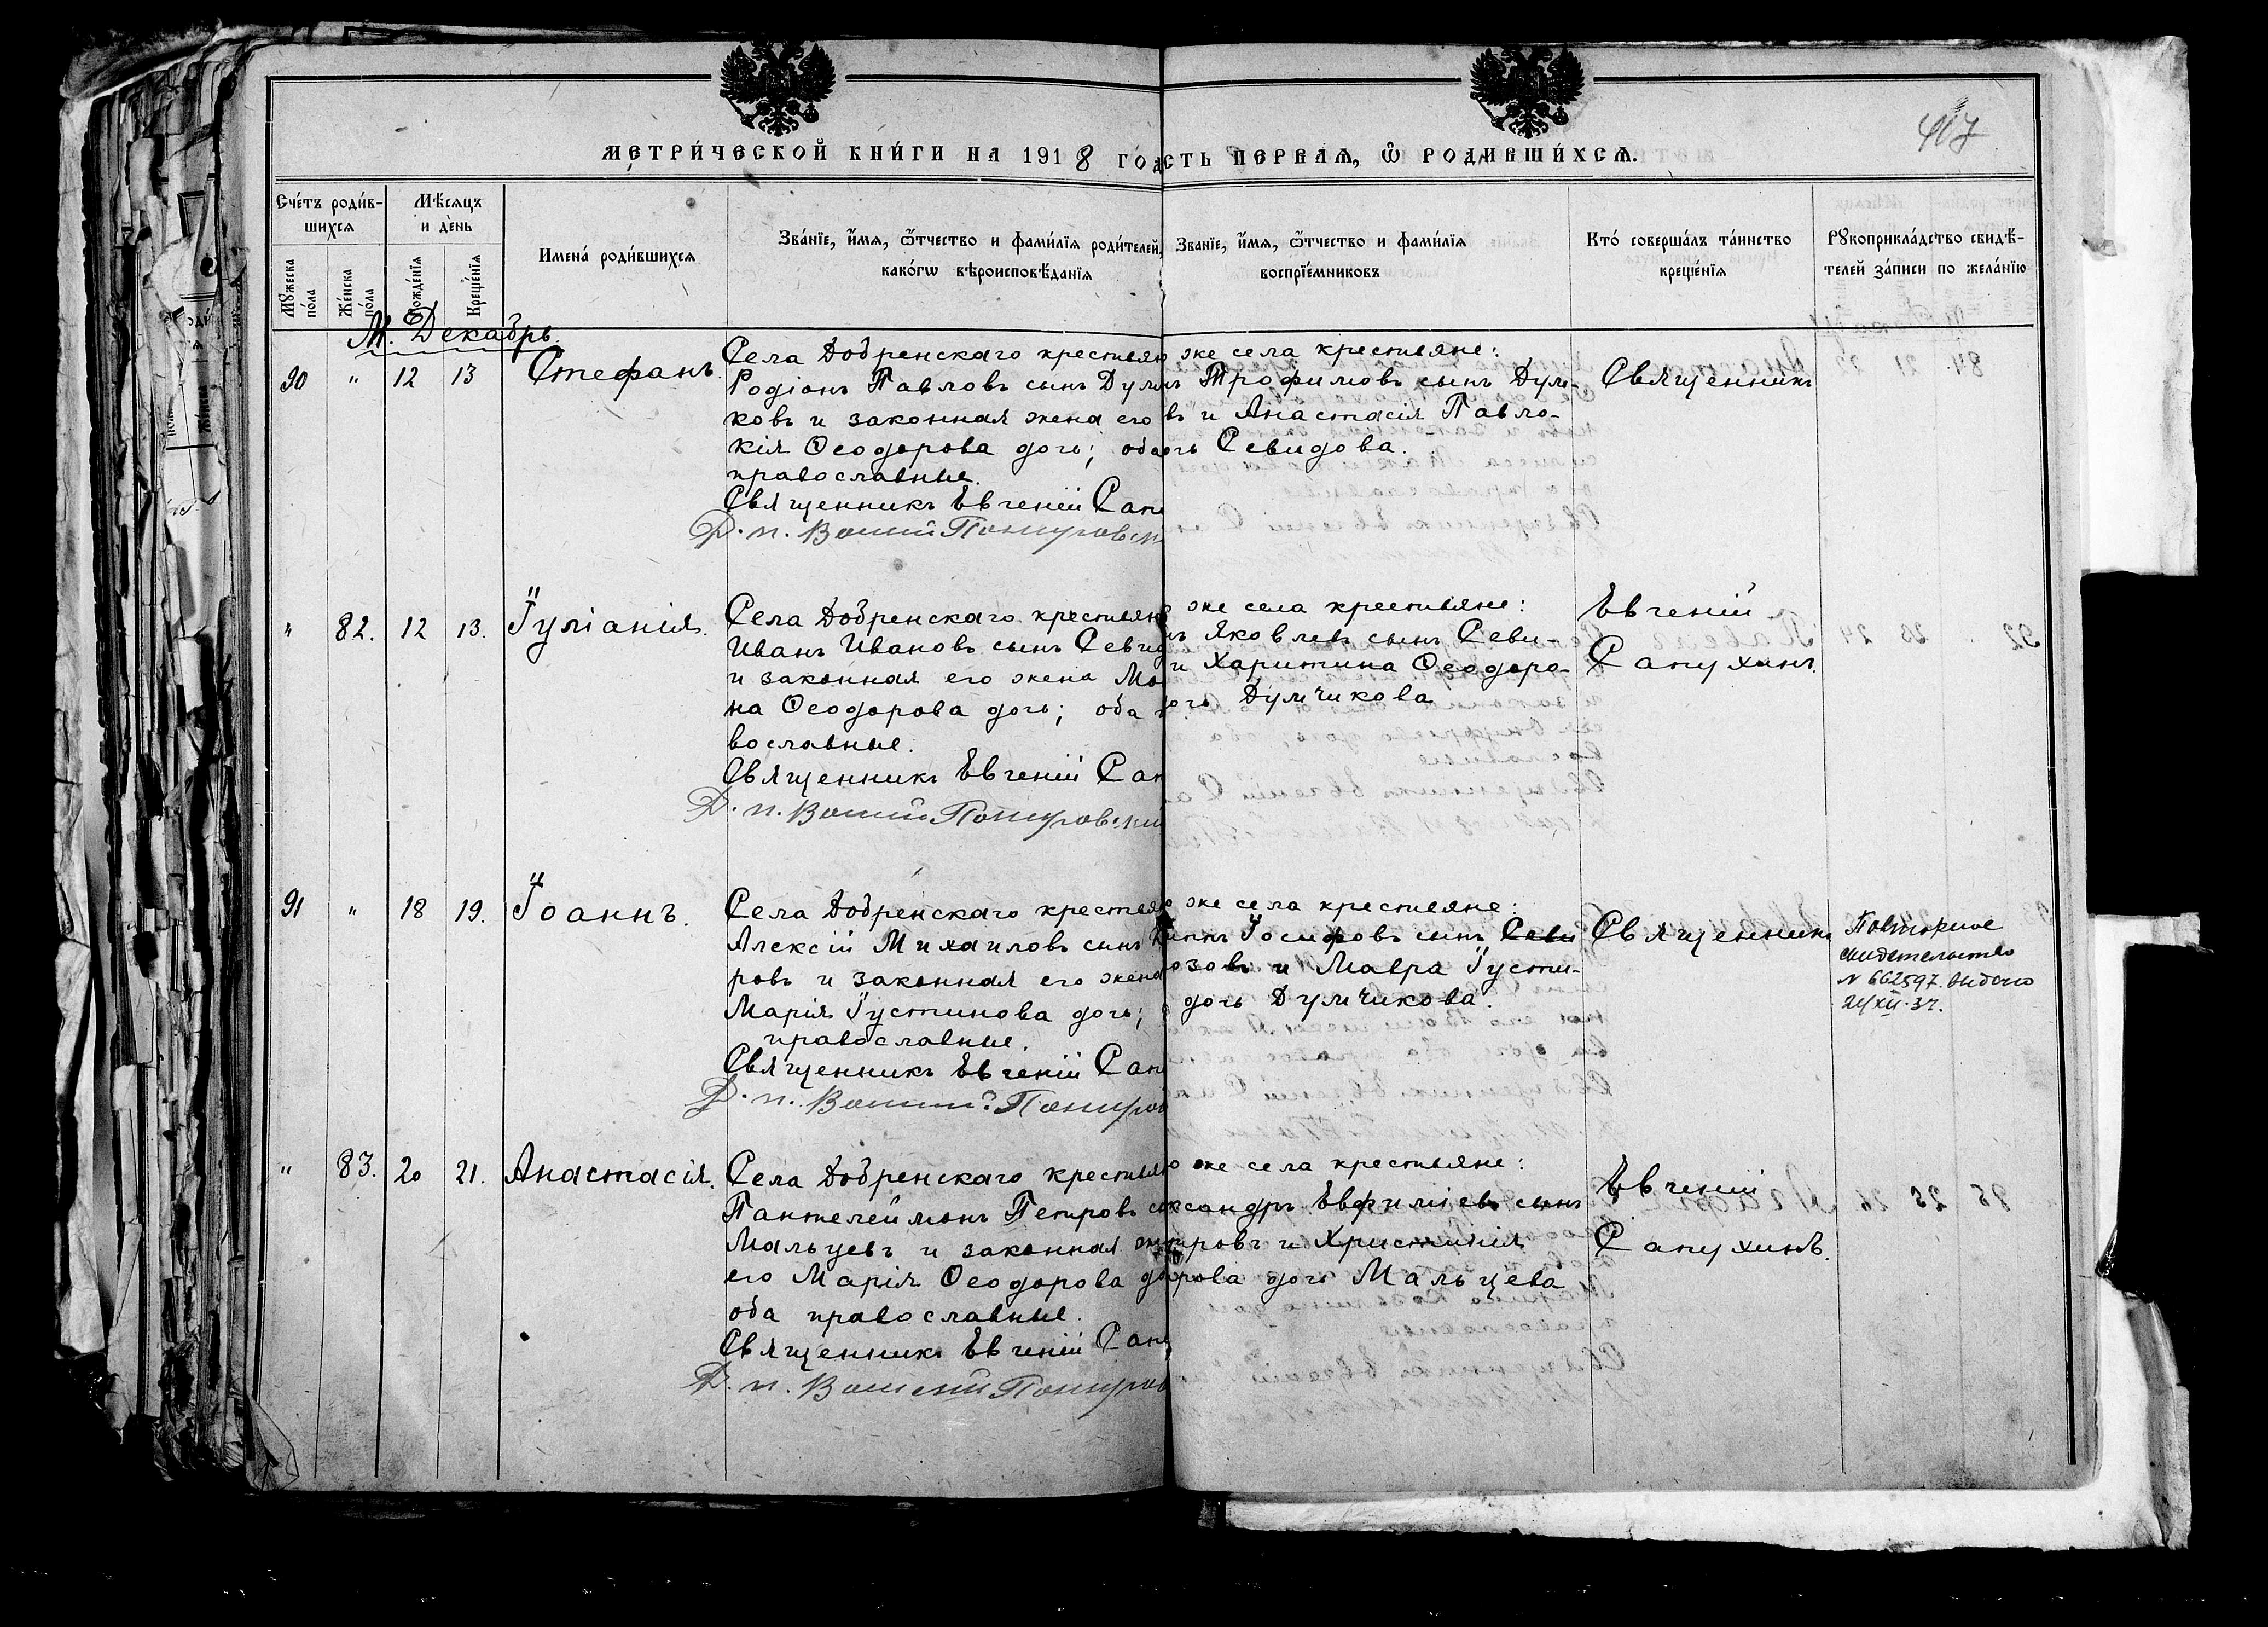 417
МЕТРИ́ЧЕСКОЙ КНИ́ГИ НА 1918 ГО
СТЬ ПЕРВАЯ, Ѿ РОДИВШИ́ХСЯ.
Сче́тъ роди́в-
шихся
Мѣ́сяцъ
и де́нь
Му́жеска
по́ла
Же́нска
по́ла
Рожде́нїя
Креще́нїя
Имена́ роди́вшихся
Зва́нїе, и҆́мя, ѻ҆́тчество и фами́лїя роди́телей,
како́гѡ вѣроисповѣ́данїя
Зва́нїе, и҆́мя, ѻ҆́тчество и фами́лїя
воспрїе́мниковъ
Кто́ соверша́лъ та́инство
креще́нїя
Рꙋкоприкла́дство свидѣ́-
телей за́писи по жела́нїю
М. Декабрь.
90 " 12 13 Стефанъ.
Села Добренскаго крестьян
Родіонъ Павловъ сынъ Дум
ковъ и законная жена его
кія Ѳеодорова дочь; оба
православные.
Священникъ Евгеній Сап
же села крестьяне:
ъ Трофимовъ сынъ Дум-
въ и Анастасія Павло-
очь Севидова.
Священникъ
" 82. 12 13. Іуліанія.
Села Добренскаго крестьян
Иванъ Ивановъ сынъ Севид
и законная его жена Ма
на Ѳеодорова дочь; оба
вославные.
Священникъ Евгеній Сап
же села крестьяне:
ъ Яковлевъ сынъ Севи-
и Харитина Ѳеодоро-
очь Думчикова
Евгеній
Сапухинъ.
91 " 18 19. Іоаннъ.
Села Добренскаго крестьян
Алексій Михаиловъ сынъ
ровъ и законная его жена
Марія Іустинова дочь;
православные.
Священникъ Евгеній Сап
же села крестьяне:
Іосифовъ сынъ Севи
озовъ и Мавра Іусти-
дочь Думчикова.
Священникъ
Повторное
свидетельство
N 662597. видано
24/XII.37.
" 83. 20 21. Анастасія.
Села Добренскаго крестьян
Пантелеймонъ Петровъ с
Мальцевъ и законная же
его Марія Ѳеодорова до
оба православные.
Священникъ Евгеній Сап
же села крестьяне:
ксандръ Евфиміевъ сынъ
ировъ и Христинія
рова дочь Мальцева
Евгеній
Сапухинъ.